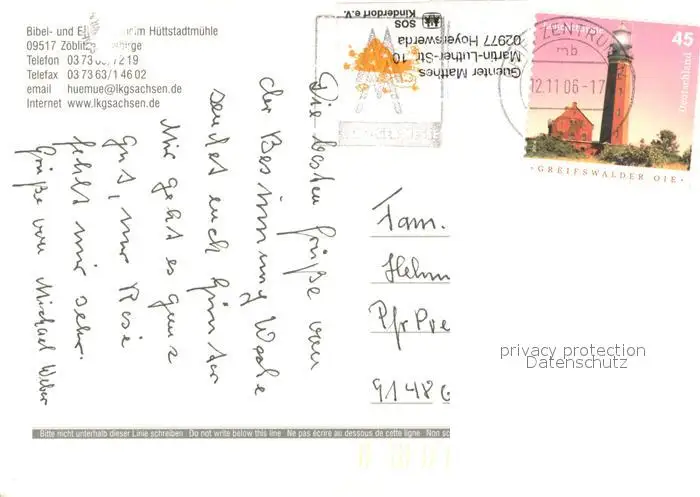 Bibel- und E heim Hüttstadtmühle
09517 Zöblitz
Telefon 03 73 63/72 19
Telefax 03 73 63/1 46 02
email huemue@lkgsachsen.de
Internet www.lkgsachsen.de
Die besten Grüße von
der Besinnung Woche
sendet euch Günter
Mir geht es ganz
gut, nur Rosi
fehlt mir sehr.
Grüße von Michael Weber
Guenter Matthes
Martin-Luther-Str. 10
02977 Hoyerswerda
SOS
Kinderdorf e.V.
ZENTRUM
mb
12.11.06-17
45
Deutschland
GREIFSWALDER OIE
Fam.
Helm
Pfr Pre
91486
privacy protection
Datenschutz
Bitte nicht unterhalb dieser Linie schreiben Do not write below this line Ne pas écrire au dessous de cette ligne Non sc